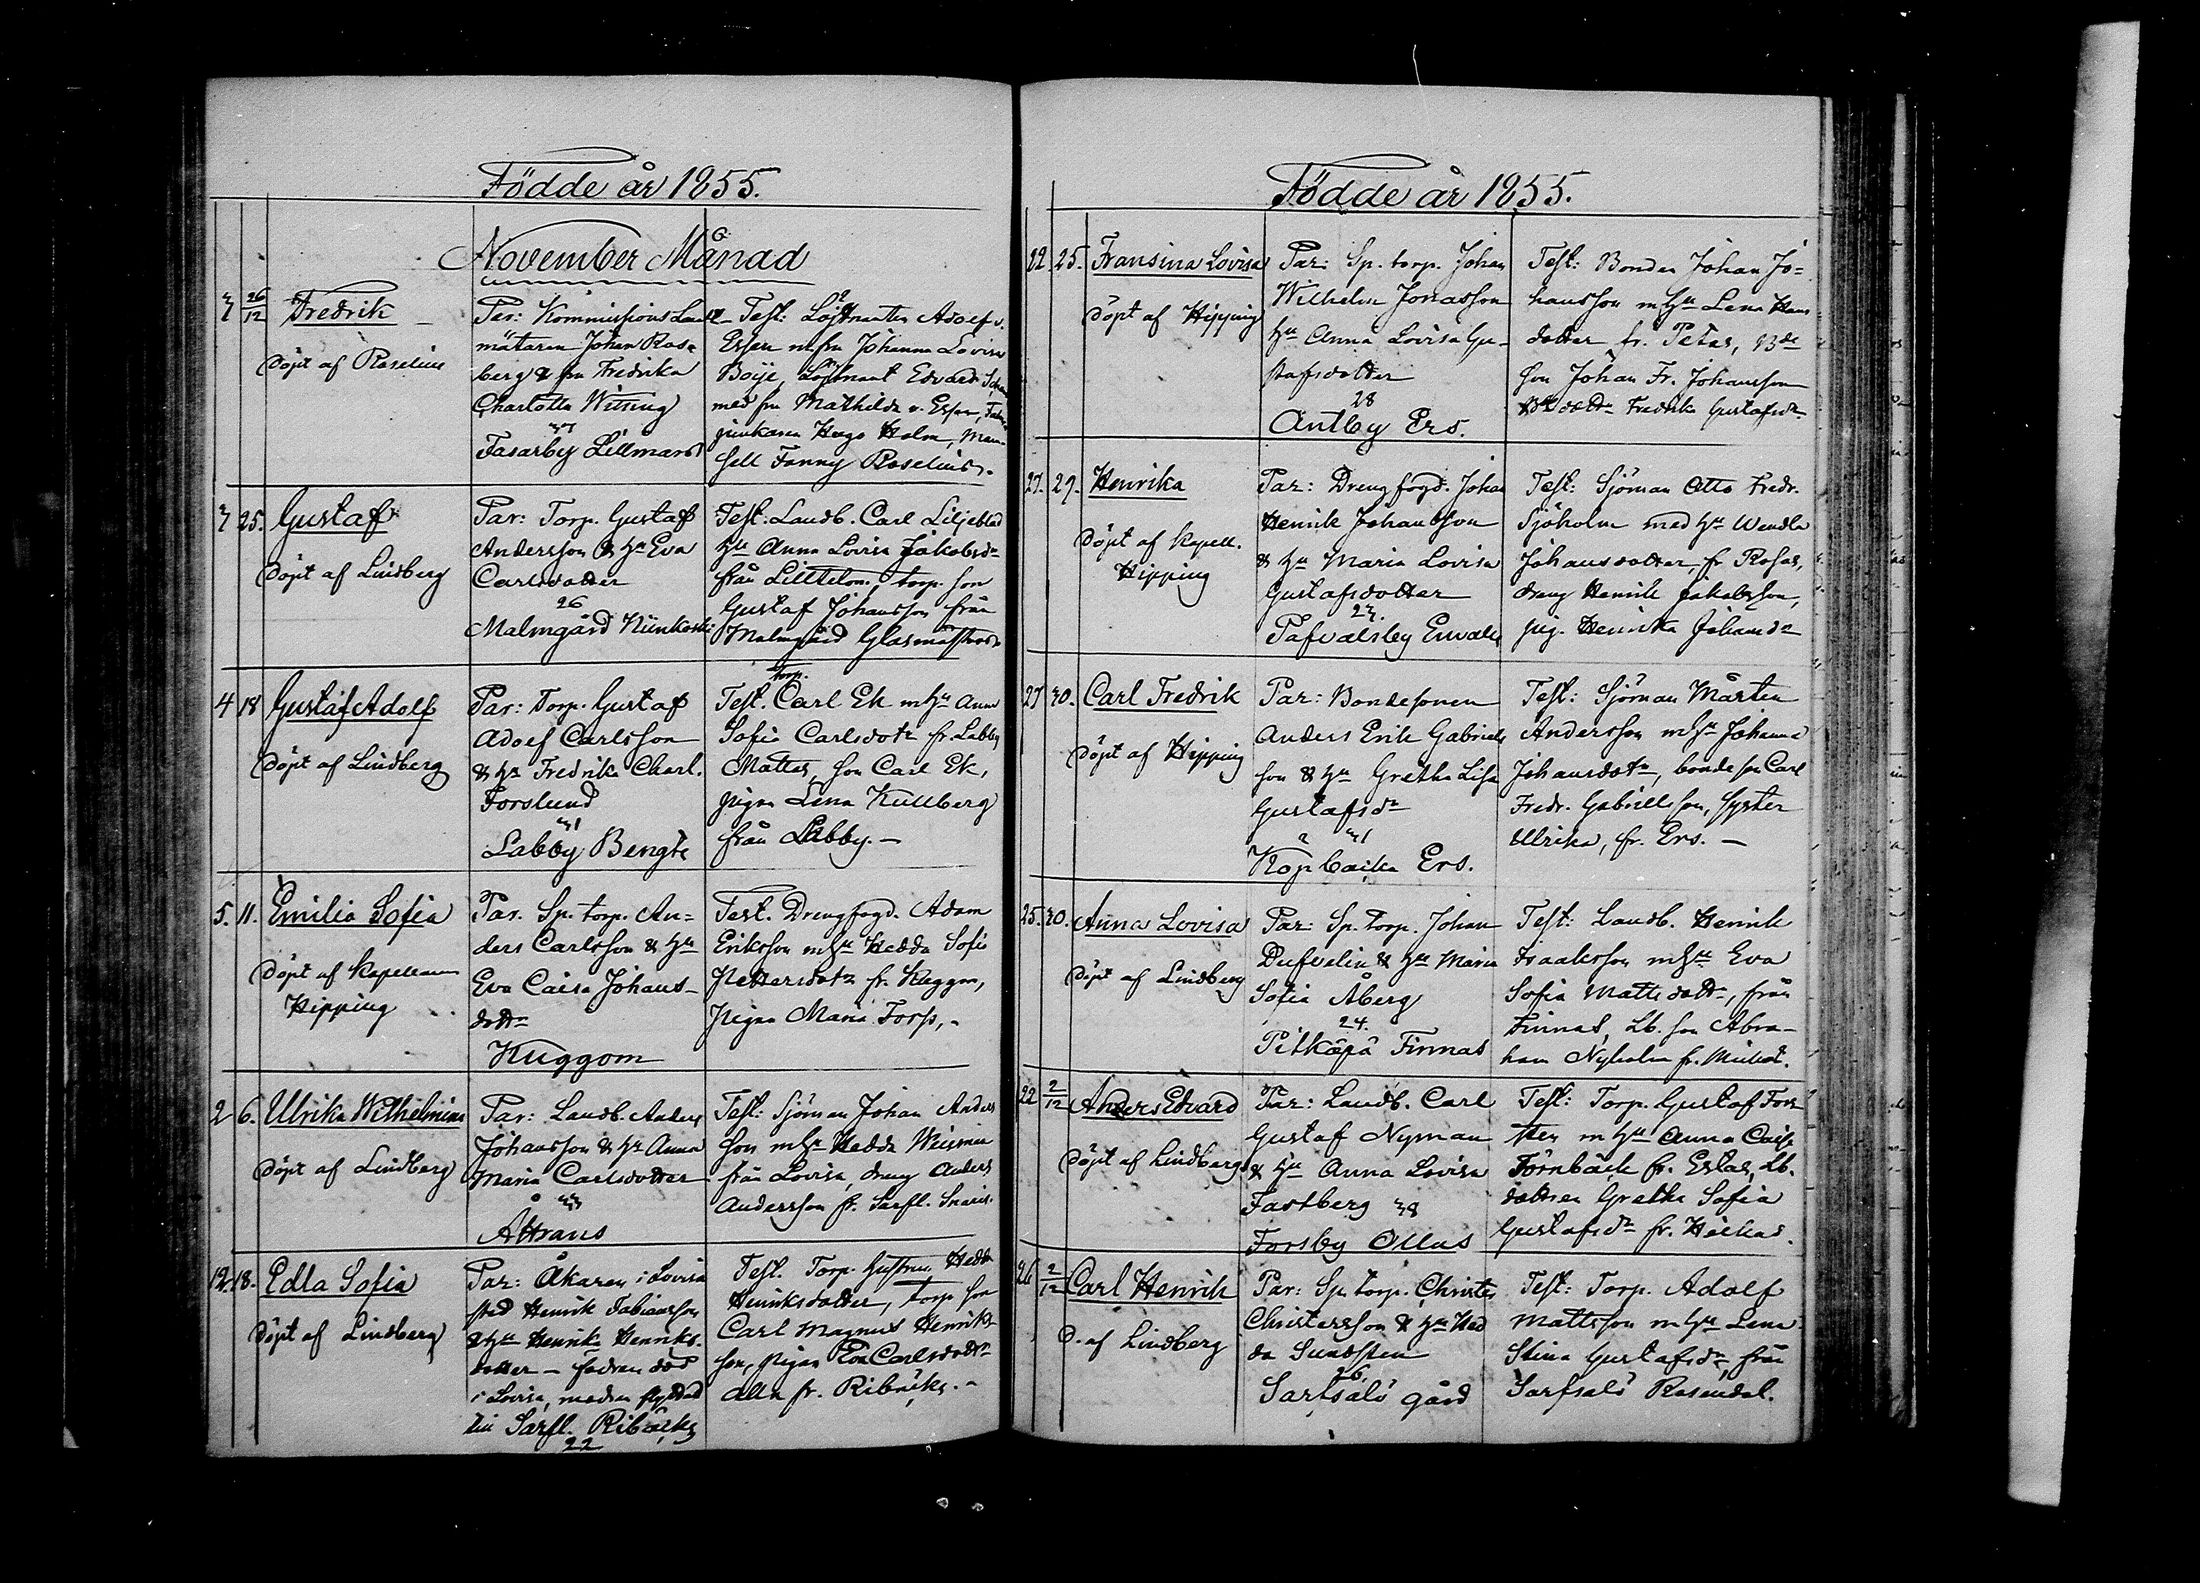 Födde år 1855.
November Månad
3 26/12 Fredrik
Döpt af Roselius
Par: Kommissions Landt
mätaren Johan Rosen
berg & fru Fredrika
Charlotta Witting
33
Tasarby Lillmars
Test: Löjtnanten Adolf v.
Essen m fru Johanna Lovisa
Boije, Löjtnant Edvard
med fru Mathilda v. Essen,
junkaren Hugo Holm, Mam-
sell Fanny Roselius.
3 25. Gustaf
Döpt af Lindberg
Par: Torp. Gustaf
Andersson & Hu Eva
Carlsdotter
26
Malmgård Niinkoski
Test: Landb. Carl Liljeblad
Hu Anna Lovisa Jakobsdr
från Lilltelom, torp. son
Gustaf Johansson från
Malmgård Glasmästars
4 18 Gustaf Adolf
Döpt af Lindberg
Par: Torp. Gustaf
Adolf Carlsson
& Hu Fredrika Charl.
Forslund
31
Labby Bengts
Torp.
Test. Carl Ek m Hu Anna
Sofia Carlsdotr fr. Labby
Mattas, son Carl Ek,
pigan Lena Kullberg
från Labby. —
5. 11. Emilia Sofia
Döpt af Kapellanen
Hipping
Par. Sp. torp. An-
ders Carlsson & Hu
Eva Caisa Johans-
dotr
Kuggom
Test. Drengfogd. Adam
Eriksson m Hu Hedda Sofia
Pettersdotr fr. Kuggom,
pigan Maria Forss, -
2 6. Ulrika Wilhelmina
Döpt af Lindberg
Par: Landb. Anders
Johansson & Hu Anna
Maria Carlsdotter
33
Åttrans
Test: Sjöman Johan Anders
son m Hu Hedda
från Lovisa, dreng Anders
Andersson fr. Sarfl.
12. 18. Edla Sofia
Döpt af Lindberg
Par: Åkaren i Lovisa
stad Henrik Fabiansson
& Hu Henrika Henriks-
dotter — fadren död
i Lovisa, modren flyttad
till Sarfl. Ribäcks
22
Test. Torp. Hustrun Hedda
Henriksdotter, torp. son
Carl Magnus Henriks-
son, pigan Eva Carlsdotr
alla fr. Ribäcks. -
Födde år 1855.
22. 25. Fransina Lovisa
Döpt af Hipping
Par: Sp. torp. Johan
Wilhelm Jonasson
Hu Anna Lovisa Gu-
stafsdotter
28
Antby Ers.
Test: Bonden Johan Jo-
hansson m Hu Lena Hans
dotter fr. Petas, bde
son Johan Fr. Johansson
dottr Fredrika Gustafsdr
27. 29. Henrika
Döpt af Kapell.
Hipping
Par: Drengfogd. Johan
Henrik Johansson
& Hu Maria Lovisa
Gustafsdotter
23.
Tafvalsby Envalds
Test: Sjöman Otto Fredr.
Sjöholm med Hu Wendla
Johansdotter, fr. Rosas,
dreng Henrik Jakobsson,
pig. Henrika Johansdr
27 30. Carl Fredrik
Döpt af Hipping
Par: Bondesonen
Anders Erik Gabriels
son & Hu Gretha Lisa
Gustafsdr
31
Köpbacka Ers.
Test: Sjöman Mårten
Andersson m Hu Johanna
Johansdotr, bonde son Carl
Fredr. Gabrielsson, syster
Ulrika, fr. Ers. —
25. 30. Anna Lovisa
Döpt af Lindberg
Par: Sp. torp. Johan
Dufvelin & Hu Maria
Sofia Åberg
24.
Pitkäpä Finnas
Test: Landb. Henrik
Isaaksson m Hu Eva
Sofia Mattsdottr, från
Finnas, Lb. son Abra-
ham Nyholm fr.
22 2/12 Anders Edvard
Döpt af Lindberg
Par: Landb. Carl
Gustaf Nyman
& Hu Anna Lovisa
Fastberg 38
Forsby Ollas
Test: Torp. Gustaf Fors
sten m Hu Anna Caisa
Törnbäck fr. Estas, Lb.
dottren Gretha Sofia
Gustafsdr fr. Häckas.
26 2/12 Carl Henrik
D. af Lindberg
Par: Sp. torp. Christer
Christersson & Hu Hed
da Sundsten
26
Sarfsalö gård
Test: Torp. Adolf
Mattsson m Hu Lena
Stina Gustafsdr, från
Sarfsalö Rosendal.